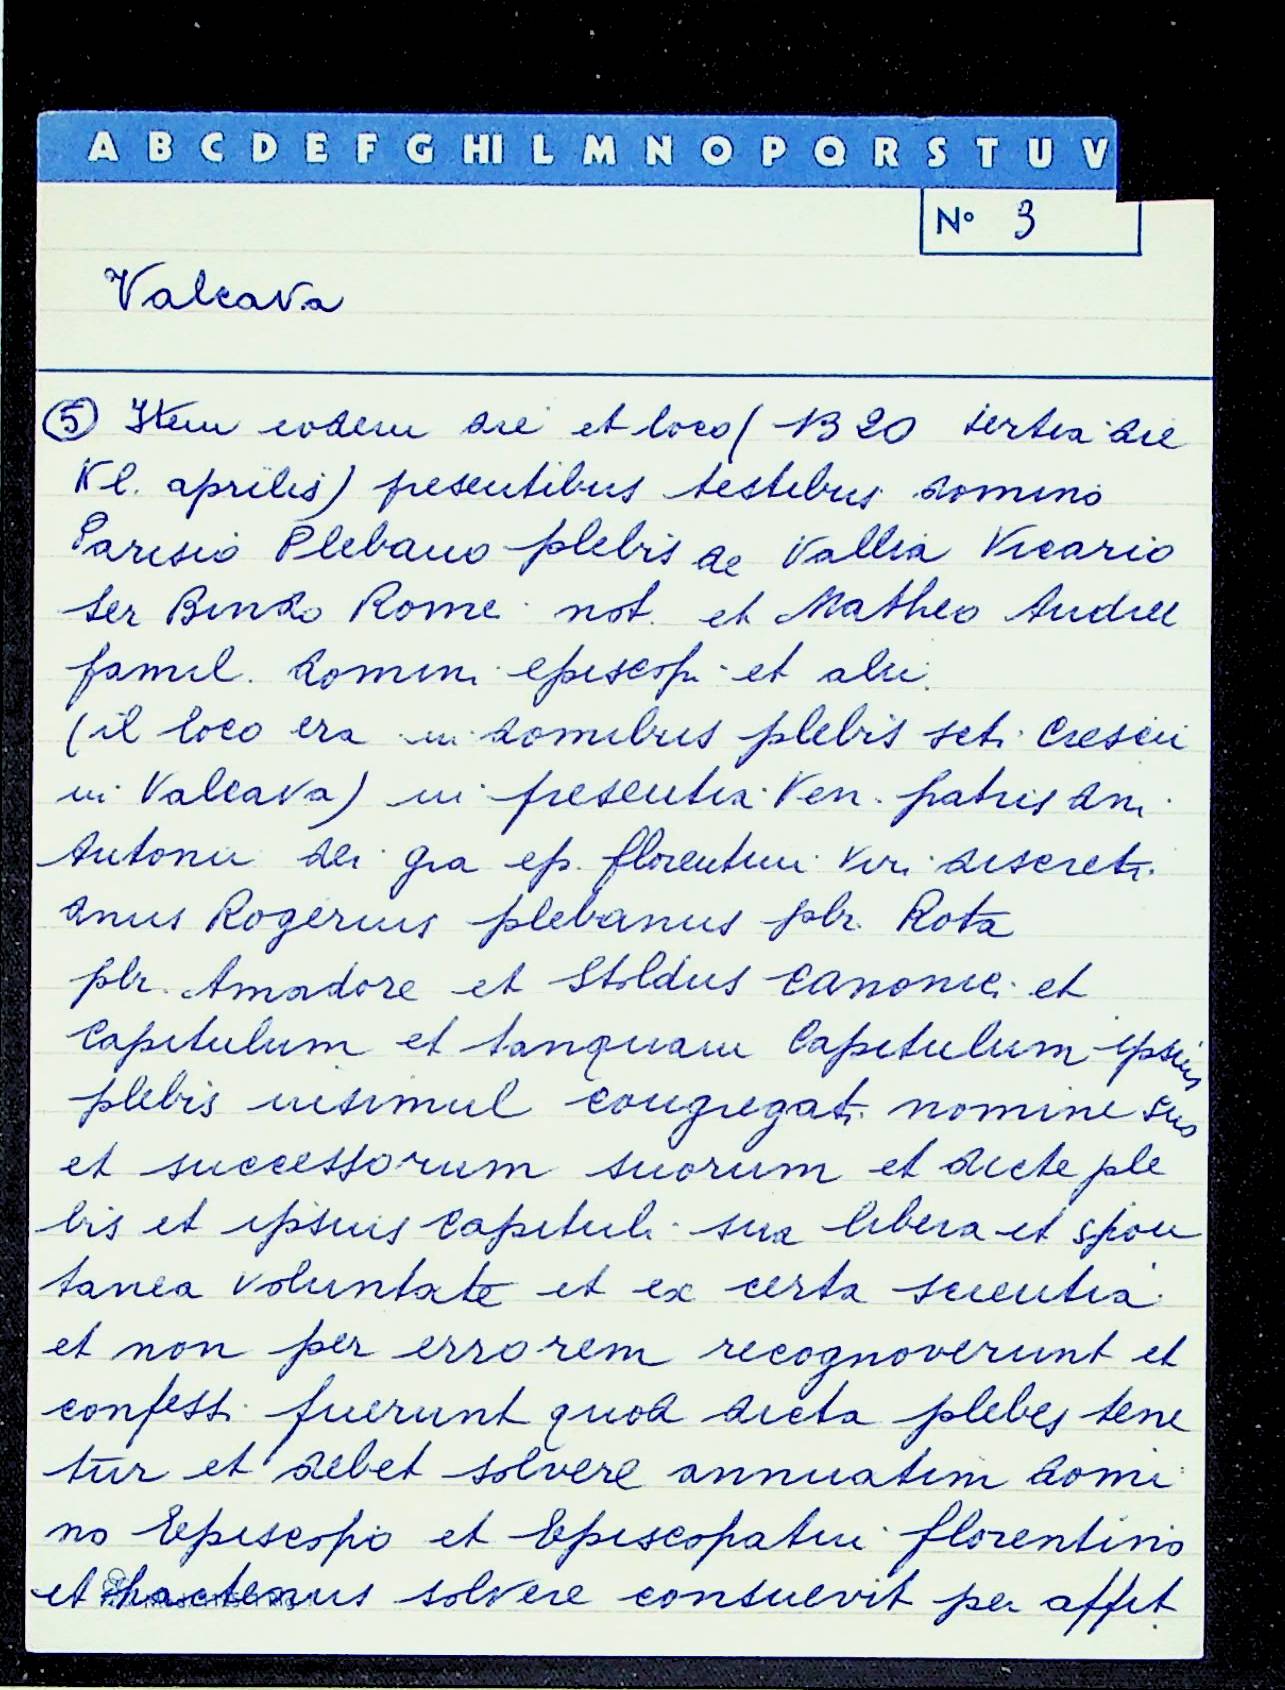 A B C D E F G HI L M N O P Q R S T U V
N° 3
Valcava
(5) Item eodem die et loco ( 1320 tertia die
Kl. aprilis) presentibus testibus domino
Parisio Plebano plebis de Vallia Vicario
ser Bindo Rome not. et Matheo Andree
famil. domini episcopi et alii.
(il loco era in domibus plebis scti Cresci
in Valcava) in presentia Ven. patris dni
Antonii dei gra ep. florentini viri discreti
dnus Rogerius plebanus pbr. Rota
pbr. Amadore et Stoldus canonici et
Capitulum et tanquam Capitulum ipsius
plebis insimul congregati nomine suo
et successorum suorum et dicte ple
bis et ipsius Capituli sua libera et spon
tanea voluntate et ex certa scientia
et non per errorem recognoverunt et
confessi fuerunt quod dicta plebes tene
tur et debet solvere annuatim domi
no Episcopo et Episcopatui florentino
et hactenus solvere consuevit per affit